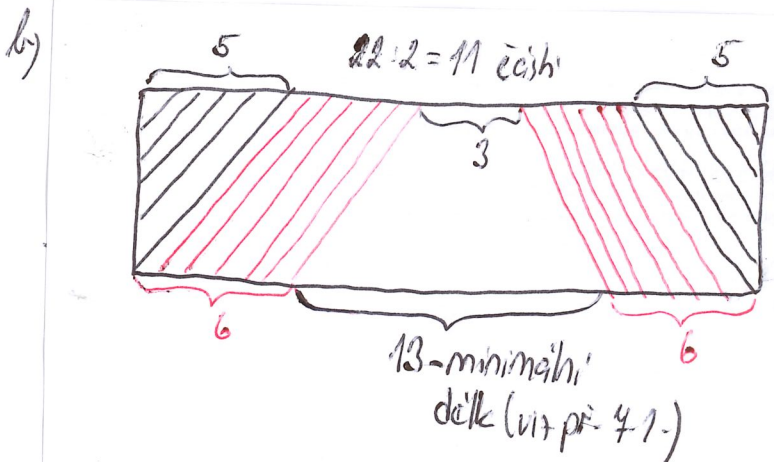 b)
5
22:2 = 11 částí
5
3
6
13-minimální
6
délk (viz př. 7.1.)